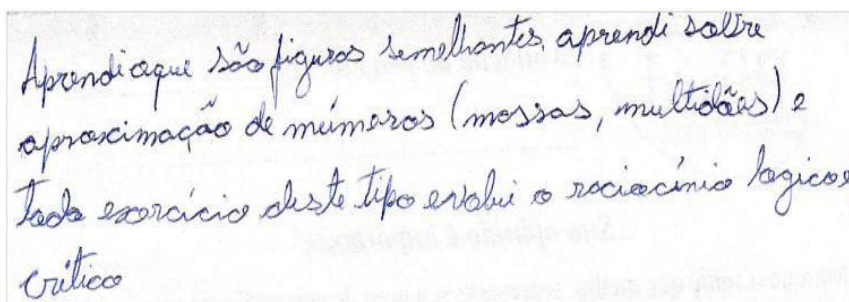 Aprendi oque são figuras semelhantes, aprendi sobre
aproximação de números (massas, multidões) e
todo exercício deste tipo evolui o raciocínio logico e
crítico